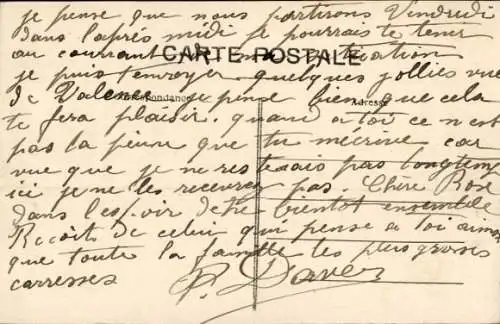 je pense que nous partirons Vendredi
dans l'après midi je pourrais te tenir
au courrant de ma situation
CARTE POSTALE
je puis t'envoyer quelques jollies vue
Correspondance
Adresse
de Valence je pense bien que cela
te fera plaisir. quand à toi ce n'est
pas la peine que tu m'écrive car
vue que je ne resterais pas longtemp
ici je ne les recevrez pas. Chère Rose
dans l'espoir d'être bientot ensemble
Recoits de celui qui pense a toi ainsi
que toute la famille les plus grosses
carresses P.